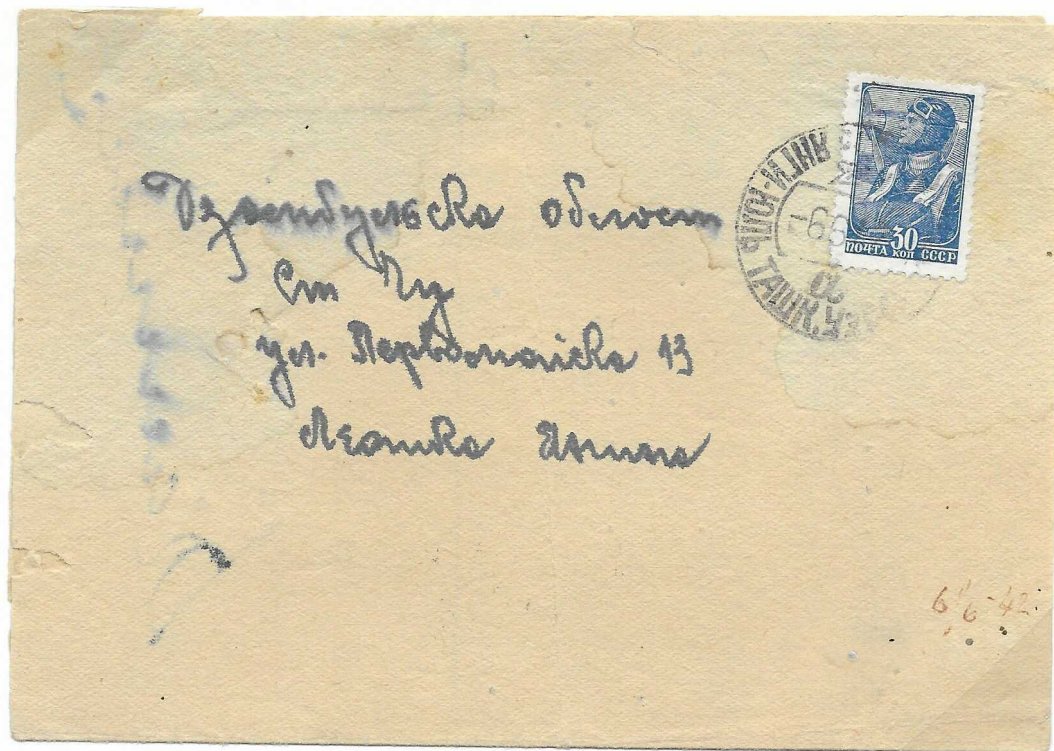 Дзамбульска область
ст Чу
ул. Первомайска 13
Леошко Янина
ПОЧТА 30 КОП СССР
ЯНГИ-ЮЛЬ ТАШК. УЗ
-6.6
а
6/6-42